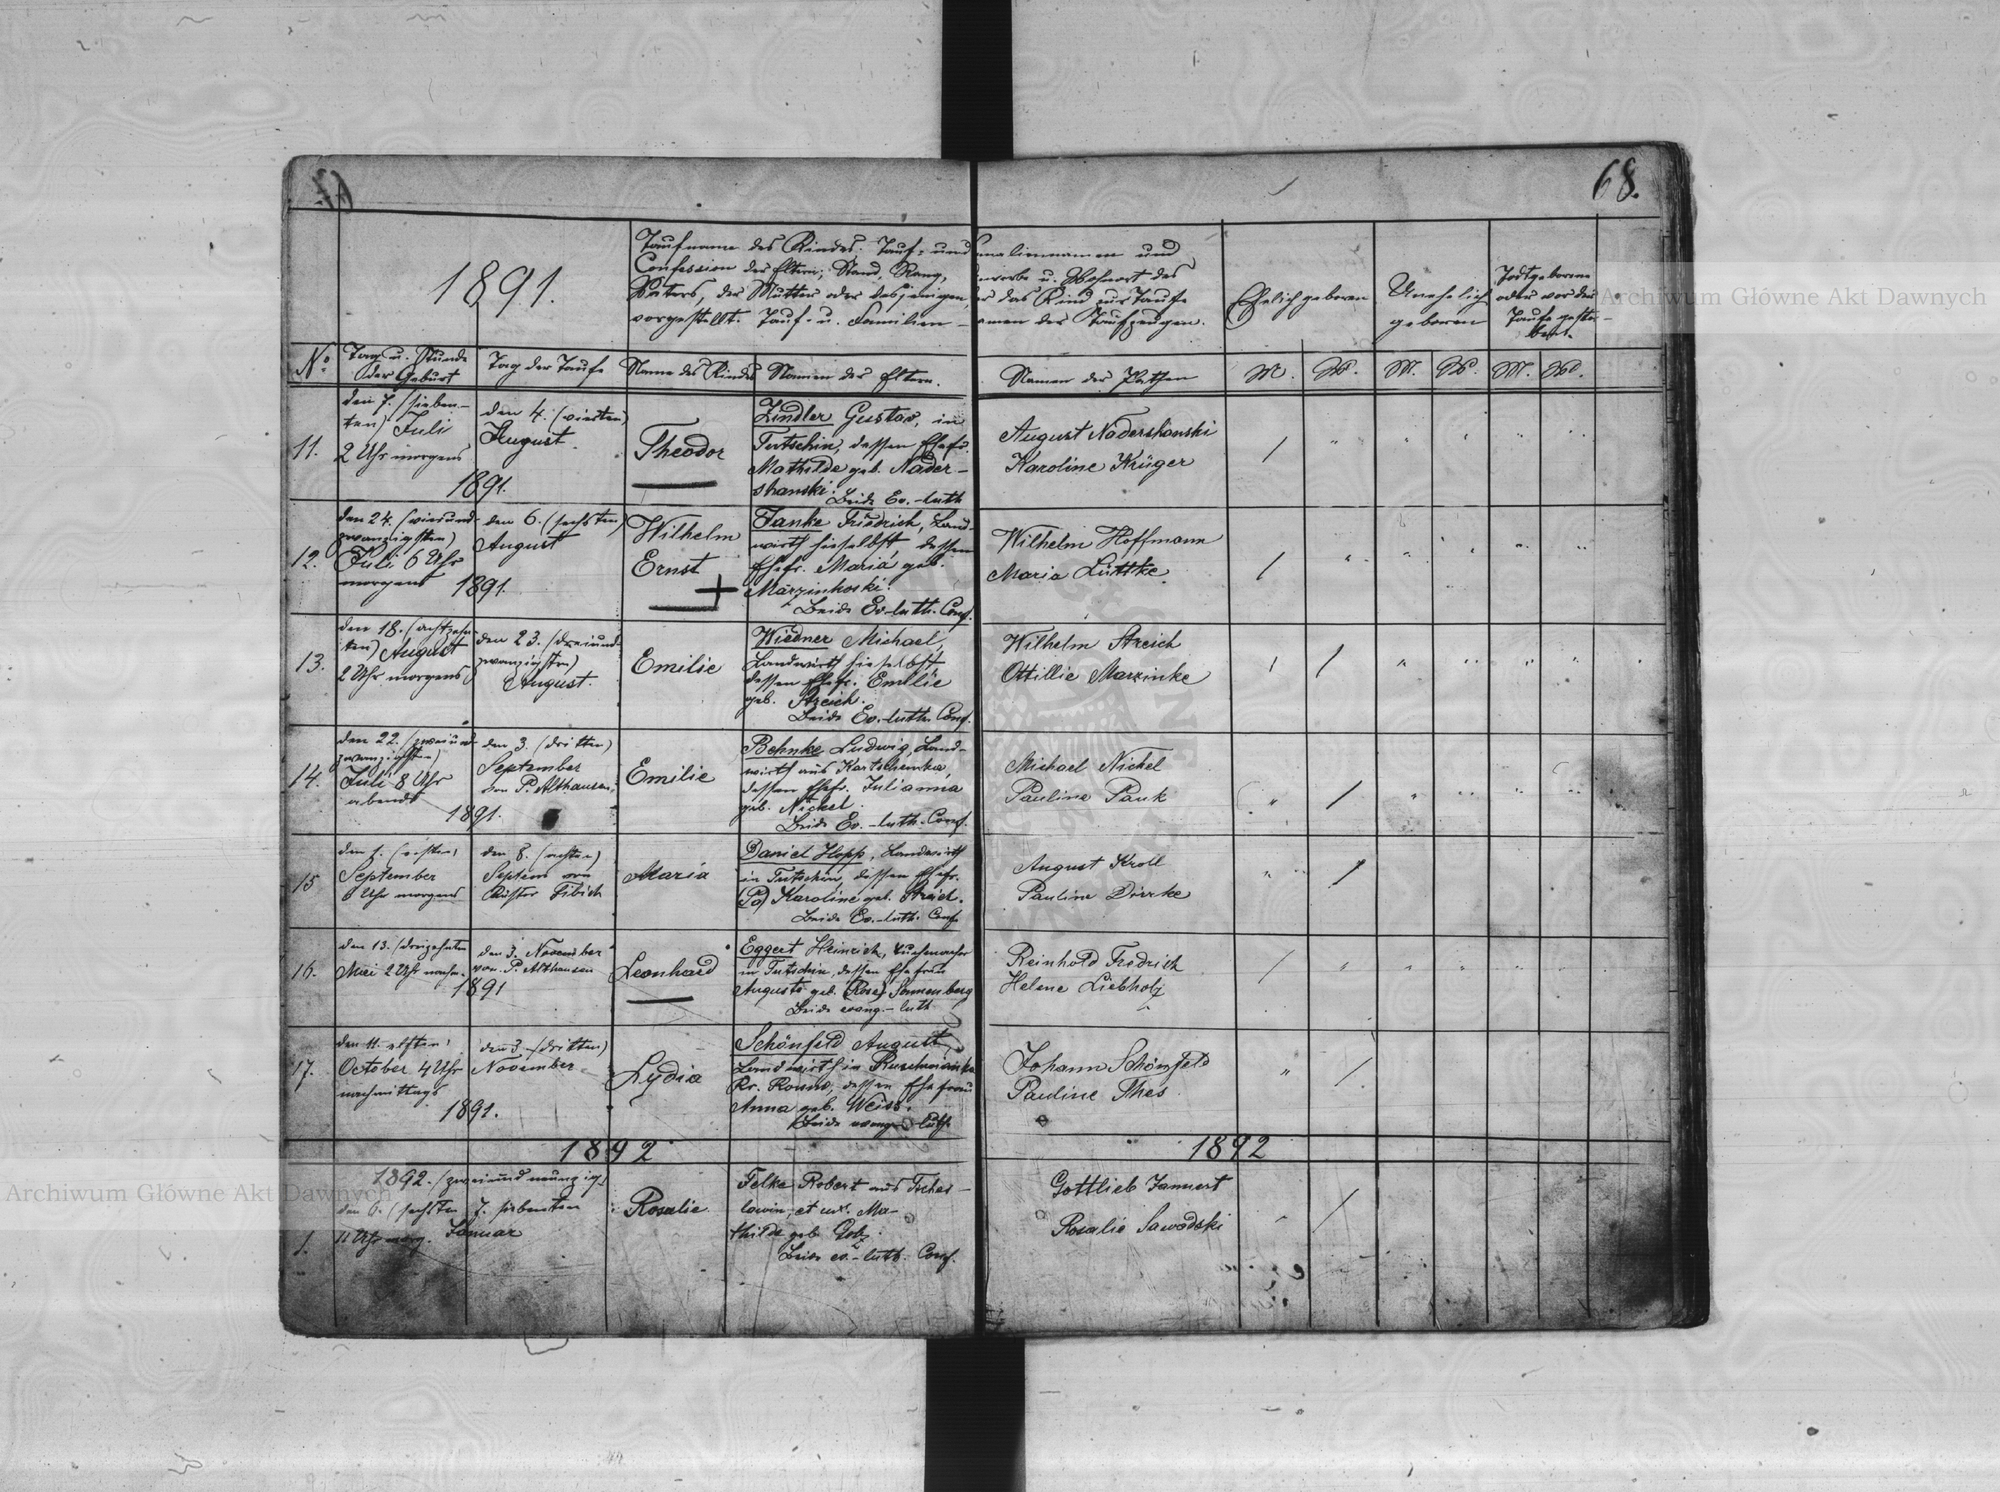 68.
1891.
Taufname des Kindes; Tauf- und Familiennamen und
Confession der Eltern; Stand, Rang, Gewerbe u. Wohnort des
Vaters, der Mutter oder desjenigen, der das Kind zur Taufe
vorgestellt. Tauf- u. Familien-namen der Taufzeugen.
Ehelich geboren
Unehelich
geboren
Todtgeborene
oder vor der
Taufe gestor-
ben.
No.
Tag u. Stunde
der Geburt
Tag der Taufe
Name des Kindes
Namen der Eltern.
Namen der Pathen
M. W. M. W. M. W.
11.
den 7. (sieben-
ten) Juli
2 Uhr morgens
den 4. (vierten)
August.
1891.
Theodor
Zindler Gustav, in
Tutschin, dessen Ehefr.
Mathilde geb. Nader-
shanski.
Beide Ev.-luth
August Nadershanski
Karoline Krüger
12.
den 24. (vierund-
zwanzigsten)
Juli 6 Uhr
morgens
den 6. (sechsten)
August
1891.
Wilhelm
Ernst
Janke Friedrich, Land-
wirth hieselbst, dessen
Ehefr. Maria geb.
Marzinkoski.
Beide Ev.-luth. Conf.
Wilhelm Hoffmann
Maria Lüttke.
13.
den 18. (achtzehn-
ten) August
2 Uhr morgens
den 23. (dreiund-
zwanzigsten)
August.
Emilie
Wiedner Michael,
Landwirth hieselbst,
dessen Ehefr. Emilie
geb. Streich.
Beide Ev.-luth. Conf.
Wilhelm Streich
Ottillie Marzinke
14.
den 22. (zweiund-
zwanzigsten)
Juli 8 Uhr
abends
den 3. (dritten)
September
von P. Althausen.
1891.
Emilie
Behnke Ludwig, Land-
wirth aus Kartschemka,
dessen Ehefr. Julianna
geb. Nickel.
Beide Ev.-luth. Conf.
Michael Nickel
Pauline Pauk
15
den 1. (ersten)
September
6 Uhr morgens
den 8. (achten)
Septem von
Küster Fibich
Maria
Daniel Hopp, Landwirth
in Tutschin, dessen Ehefr.
Karoline geb. Streich.
Beide Ev.-luth. Conf.
August Kroll
Pauline
16.
den 13. (dreizehnten
Mai 2 Uhr nachm.
den 3. November
von P. Althausen
1891
Leonhard
Eggert Heinrich, Tuchmacher
in Tutschin, dessen Ehefrau
Auguste geb. (Rose) Sonnenberg
Beide evang.-luth
Reinhold Fredrich
Helene Liebholz
17.
den 11. elften
October 4 Uhr
nachmittags
den 3. (dritten)
November
1891.
Lydia
Schönfeld August
Landwirth in
Kr. Rowno, dessen Ehefrau
Anna geb. Weiss.
Beide evang. luth.
Johann Schönfeld
Pauline
1892
1892
1.
1892. (zweiundneunzig)
den 6. (sechsten
11 Uhr morg.
7. siebenten
Januar
Rosalie.
Felke Robert aus
et ux. Ma-
thilde geb. Golz.
Beide ev.-luth. Conf.
Gottlieb Jannert
Rosalie Sawadski
Archiwum Główne Akt Dawnych
Archiwum Główne Akt Dawnych